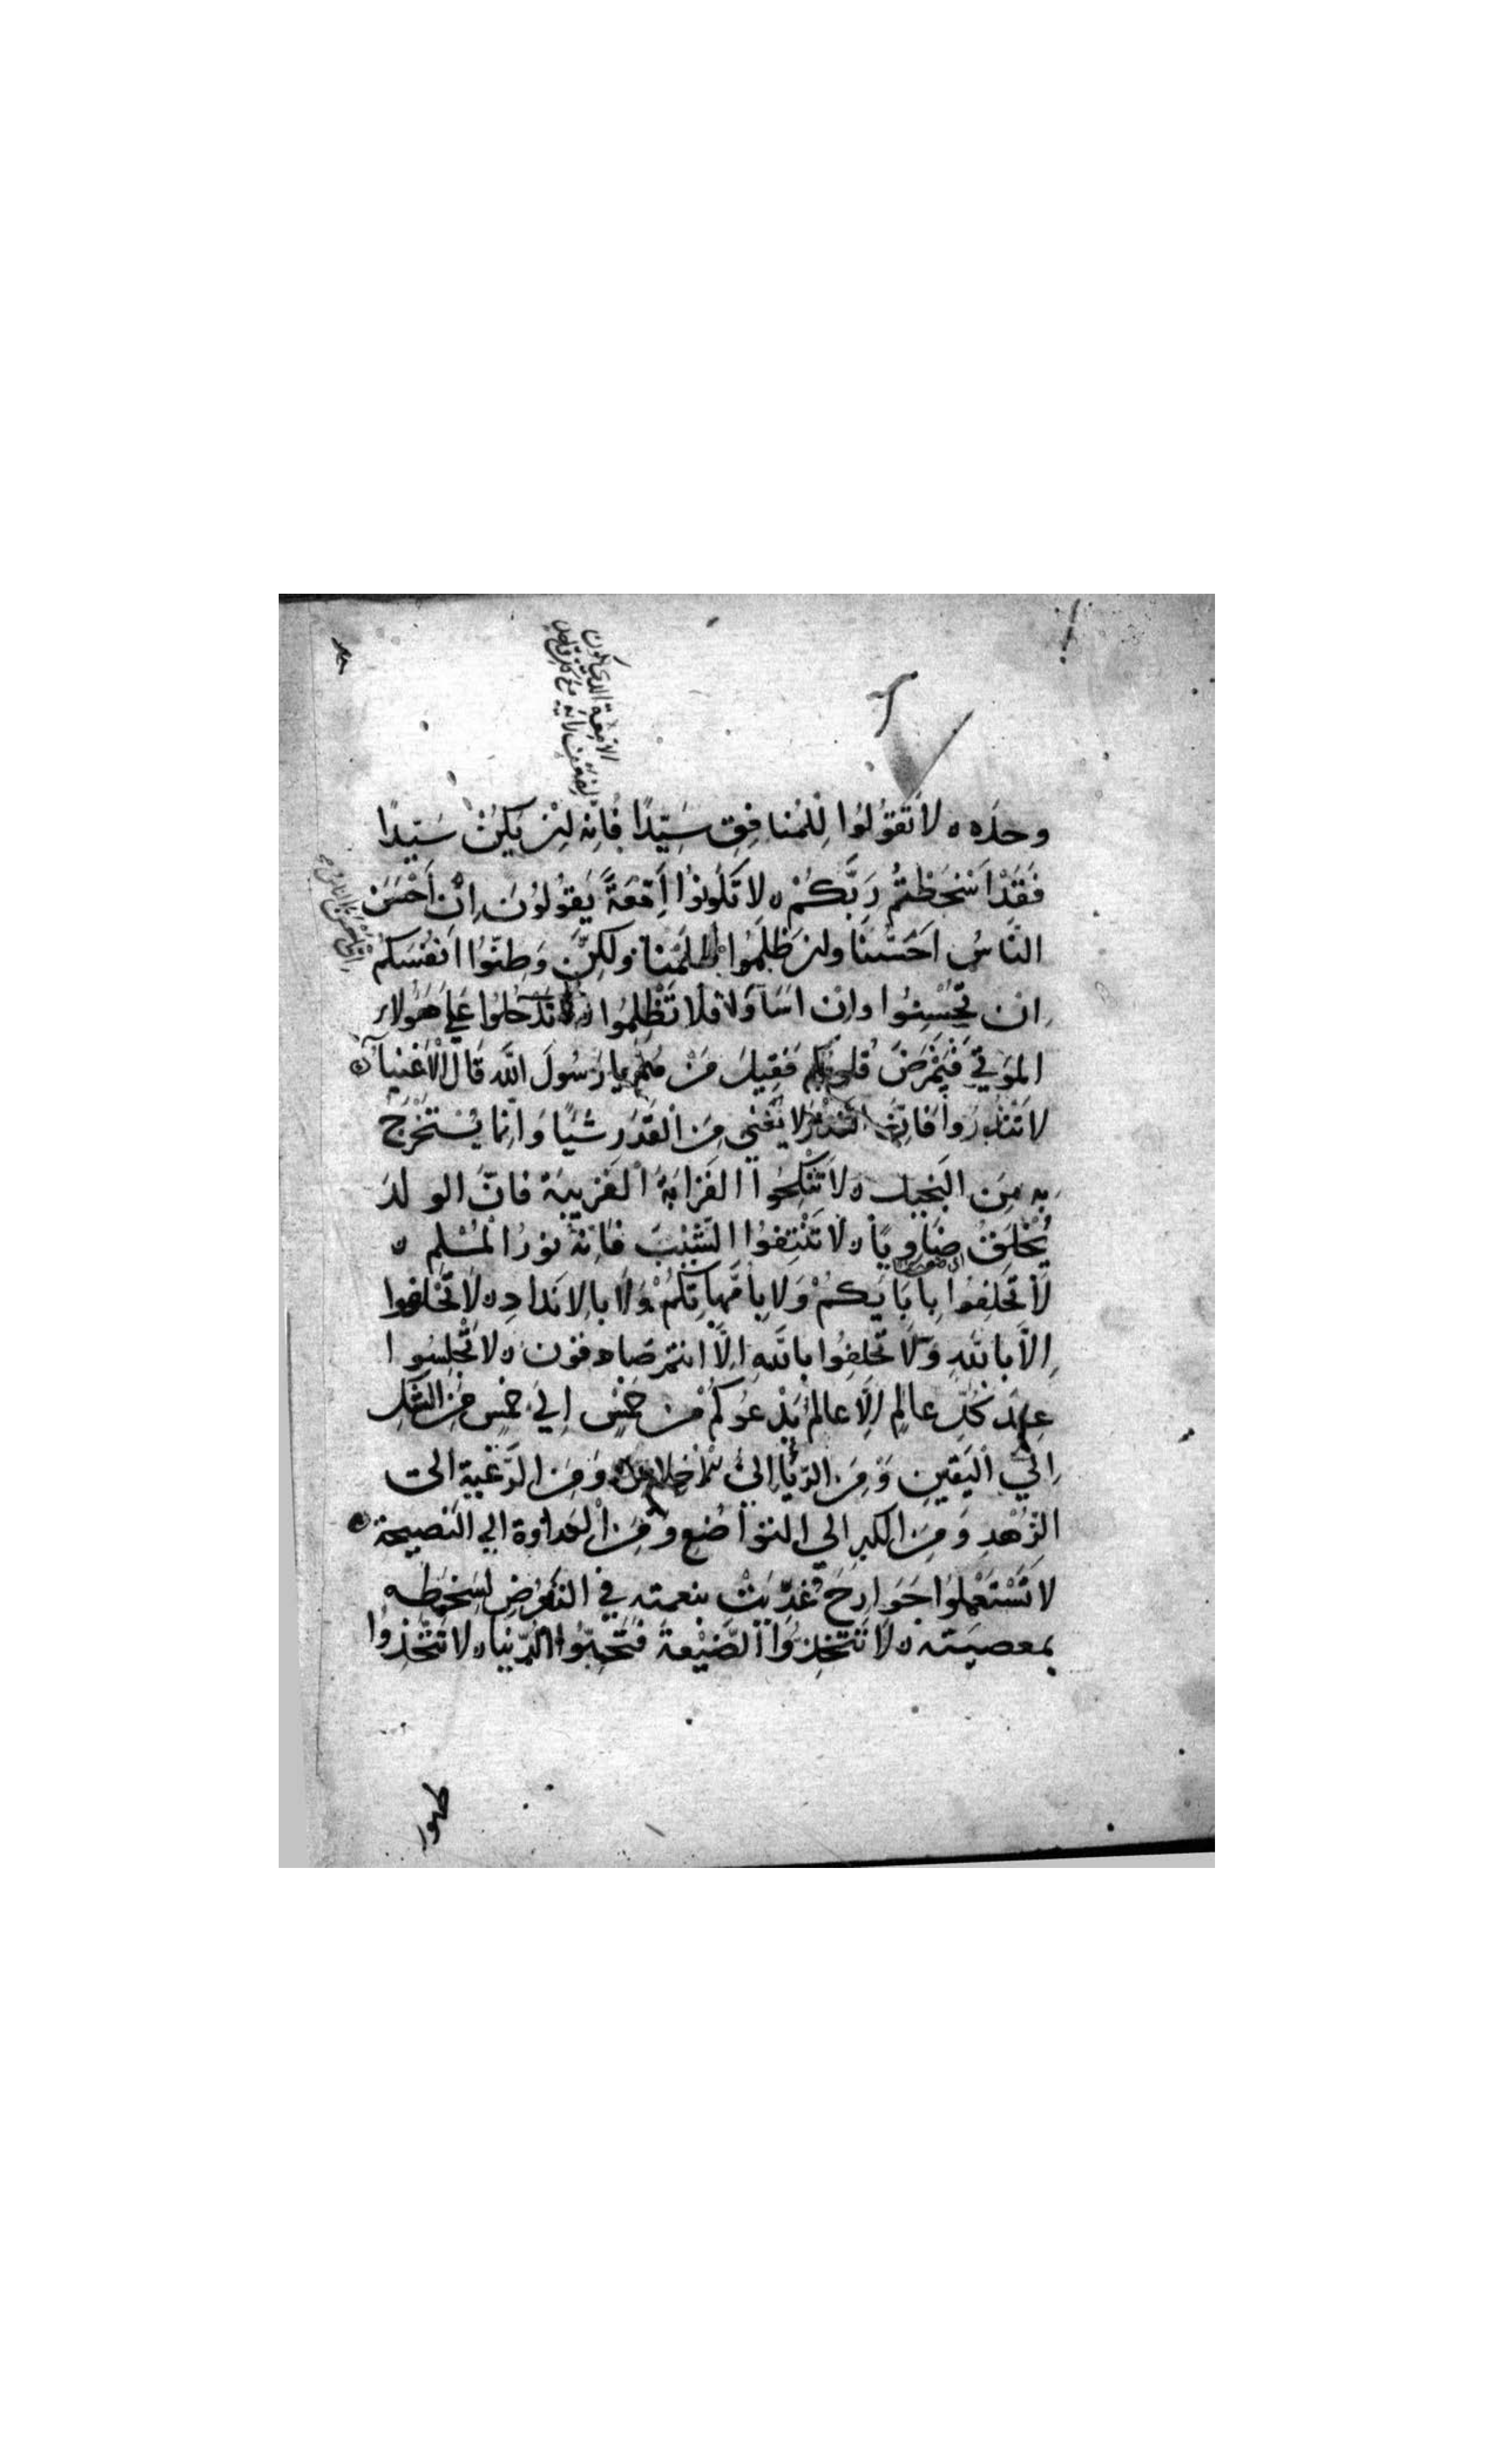 وحده ه لَا تَقُوْلُوا لِلْمُنافِقِ سَيِّدًا فَاِنه لِنْ يَكُنْ سَيِّدًا
فَقَدْ اَسْخَطْتُم رَبَّكُمْ ه لا تَكُونُوا اِمَّعَةً يَقُولُوْنَ اِنْ اَحْسَنَ
النَّاسُ اَحْسَنَّا ولن ظَلَمُوا ظَلَمْنا ولكِنْ وَطِنّوُا اَنفُسَكمُ
اِن تُحْسِنُوا واِنْ اسَآوا فلَا تَظْلِمُوا ه لَا تدخُلوُا عَلَى هَؤُلاء
الموَتي فَتَمْرَضَ قُلوبُكم فَقِيلَ مَنْ هُم يا رَسُولَ اللَّه قَالَ الْاَغْنِياَ ه
لَا تَنْذِروا فَاِنَّ النذْرَ لَا يُغني مِنَ الْقَدَرِ شَيًا وَاِنّما يُسْتخْرَجُ
بِه مِنَ البَخِيل ه لَا تَنْكِحُوا القَرَابَةَ القَرِيبَة فانَّ الولَدَ
يُخْلَقُ ضَاوِيًا ه لَا تَنْتِفوُا الشَّيْبَ فَاِنّهُ نوْرُ الْمُسْلم ه
لَا تَحلِفُوا بِابَايَكُمْ وَلا بِاُمَّهاتِكمُ وَلَا بالاندادِ ه لَا تَحْلفُوا
اِلّا بالله وَلَا تَحلِفُوا بالله اِلَّا انتم صَادقوْن ه لَا تَجلِسُوا
عِندَ كُلِّ عالِمٍ اِلَّا عالم يَدْعُوكمُ منْ خمْسٍ اِلي خمْسٍ مِنَ الشَّكِ
اِلَي الْيَقينِ وَمِنَ الرِّيَا اِلى الاخلاص وَمِنَ الرَّغْبة الى
الزُهْدِ وَمِنَ الكبر الي التوَاضُع ومِنَ الْعَداوَة الي النَصيحة ه
لَا تَسْتَعْمِلوُا جَوَارِحَ غُذِّيَتْ بنعمته في التعَرُّضِ لسَخطِه
بمعصيَته ه لَا تَتَّخِذُوا الضَّيْعةَ فَتُحِبُّوا الدُّنْيا ه لا تَتَّخِذُوا
طهوا